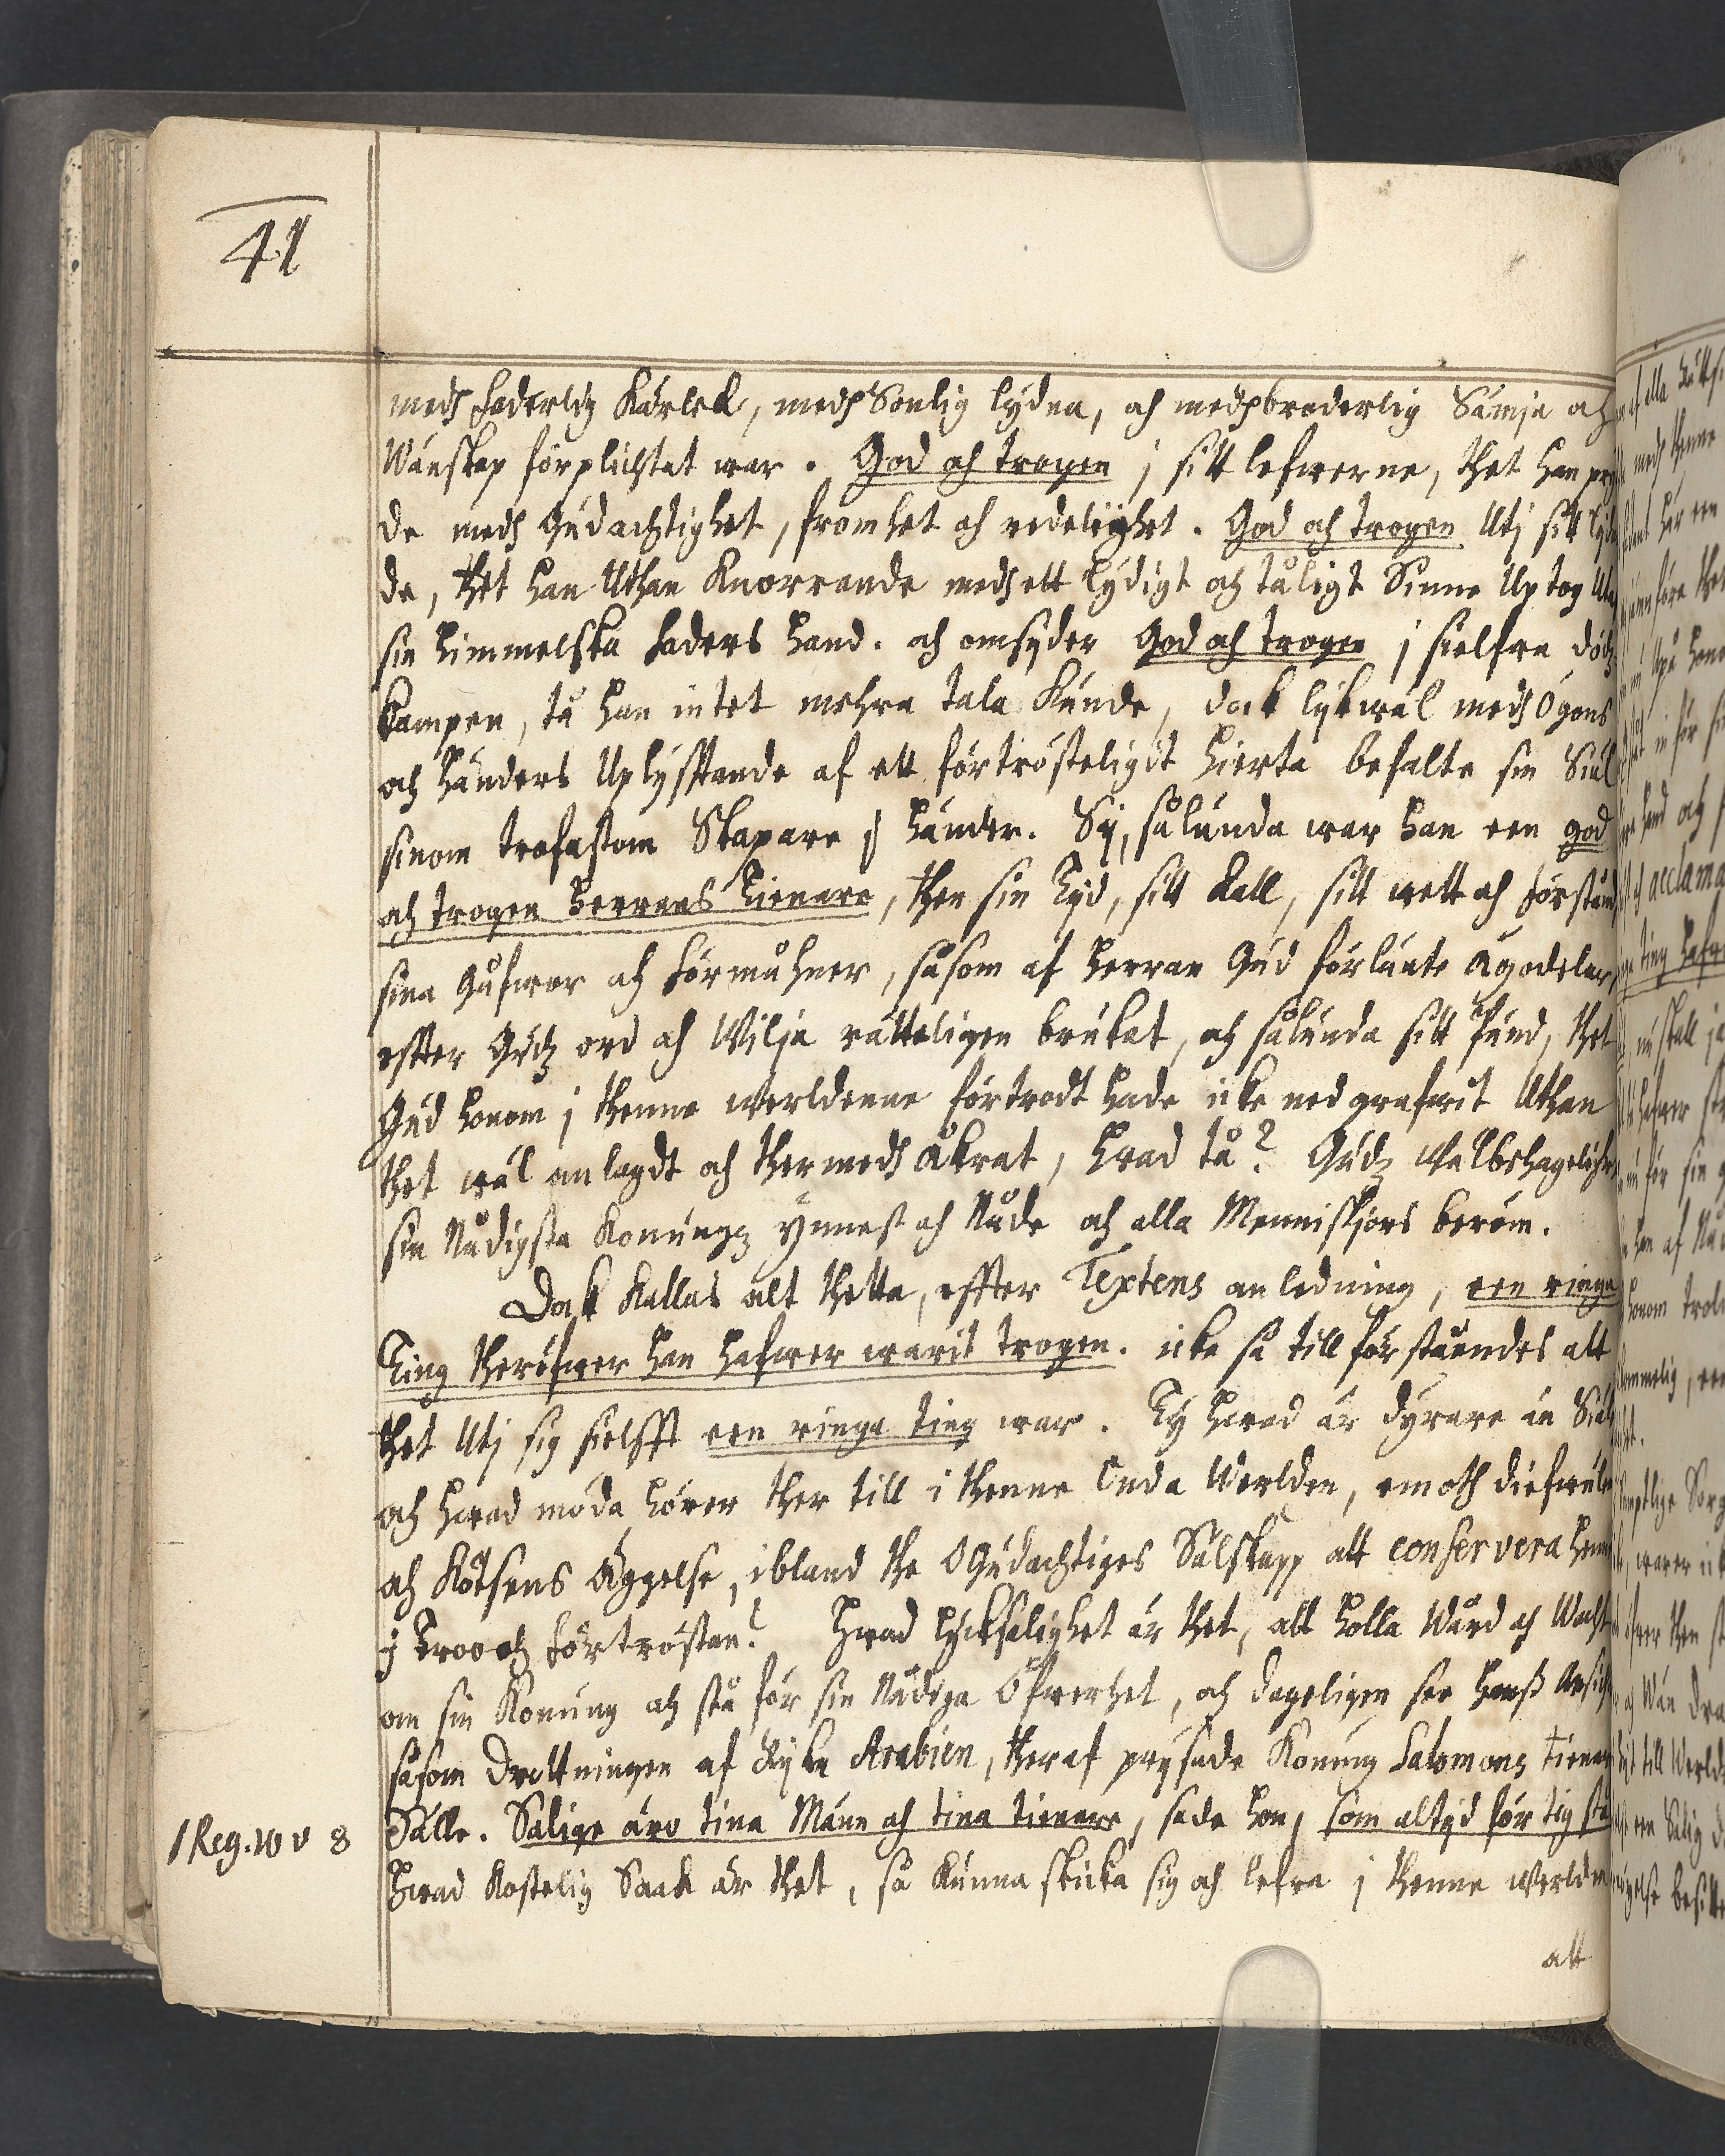 41
medh faderligh Kärlek, medh Sonlig lydna, och medh broderlig Sämja och
Wänskap förplichtat war. God och trogen j sitt lefwerne, thet han pry
de medh Gudachtighet, fromhet och redelighet. God och trogen Utj sitt lijdan
de, thet han Uthan Knorrande medh ett lydigt och tåligt Sinne Uptog Utaf
sin himmelska faders hand. och omsyder God och trogen j sielfwa dödz
kampen, tå han intet mehra tala Kunde, dock lykwäl medh Ögons
och händers Uplyfftande af ett förtrösteligit hierta befalte sin Siäl
sinom trofastom Skapare j händer. Sij, sålunda war han een god
och trogen herrans Tienare, then sin Tijd, sitt Kall, sitt wett och förstånd,
sina Gåfwor och förmåhner, såsom af herran Gud förlänte Ägodelar,
effter Gudz ord och Wilja rätteligen brukat, och sålunda sitt Pund, thet
Gud honom j thenne werldenne förtrodt hade icke nedgrafwit Uthan
thet wäl anlagdt och thermedh åkrat, hwad tå? Gudz Wälbehageligheet
sin Nådigsta Konungz Ynnest och Nåde och alla Menniskjors beröm.
Dock Kallas alt thetta, effter Textens anledning, een ringa
Ting theröfwer han hafwer warit trogen. icke så till förståendes att
thet Utj sig sielfft een ringa ting war. Ty hwad är dyrare än Siäl
och hwad möda hörer ther till i thenne Onda Werlden, emoth diefwulen
och Kötsens Äggelse, ibland the Ogudachtiges Sälskapp att conservera henne
j Troo och förtröstan? Hwad lycksalighet är thet, att holla Wård och Wacht
om sin Konung och stå för sin Nådiga Öfwerhet, och dageligen see hanß Ansichte
såsom Drottningen af Ryka Arabien, theraf prysade Konung Salomons tienare
Sälle. Salige äro tina Männ och tina tienare, sade hon, som altijd för tig stå
1 Reg. 10 v 8
Hwad Kostelig Saak är thet, så Kunna skicka sig och lefwa j thenne werlden
att